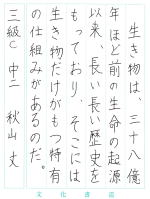 生き物は、三十八億
年ほど前の生命の起源
以来、長い長い歴史を
もっており、そこには
生き物だけがもつ特有
の仕組みがあるのだ。
三級C 中二 秋山 丈
文化書道